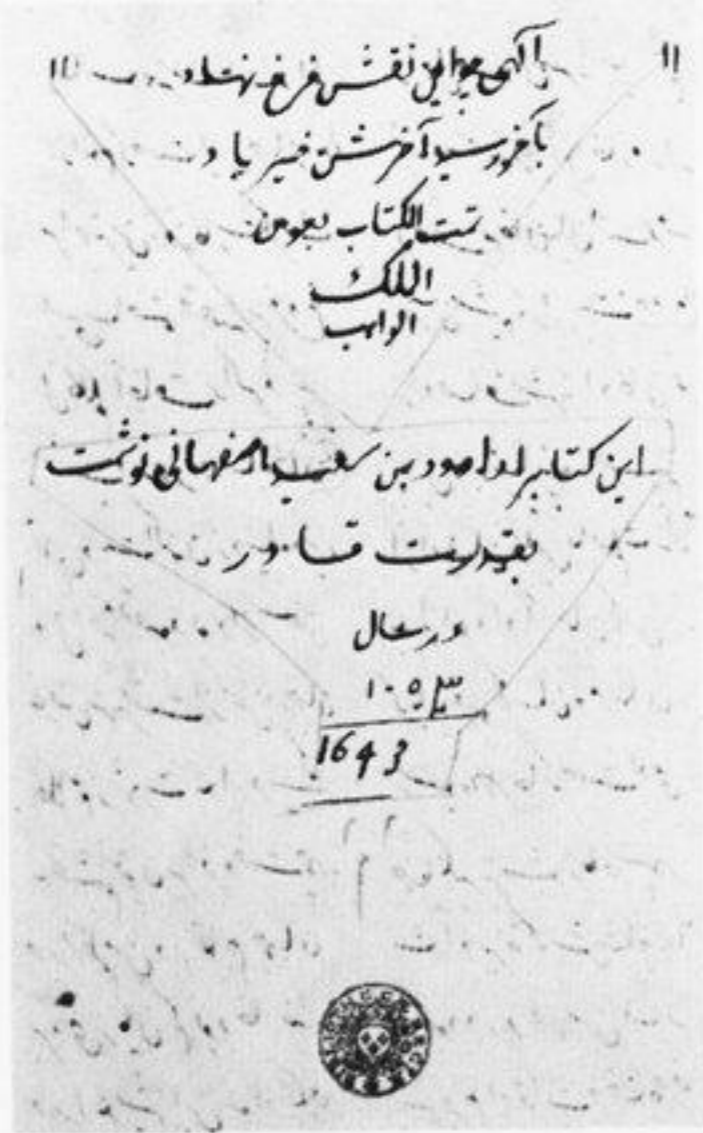 الهی چو این نقش فرخ نهاد
بآخر رسید آخرش خیر باد
تمت الکتاب بعون
الملک
الوهاب
این کتاب را داود بن سعید اصفهانی نوشت
بقدرت قادر
در سال
۱۰۵۳
1643